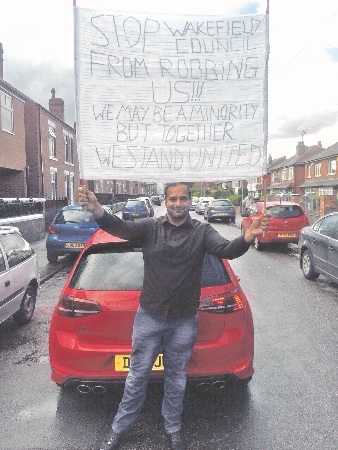 STOP WAKEFIELD
COUNCIL
FROM ROBBING
US!!!
WE MAY BE A MINORITY
BUT TOGETHER
WE STAND UNITED